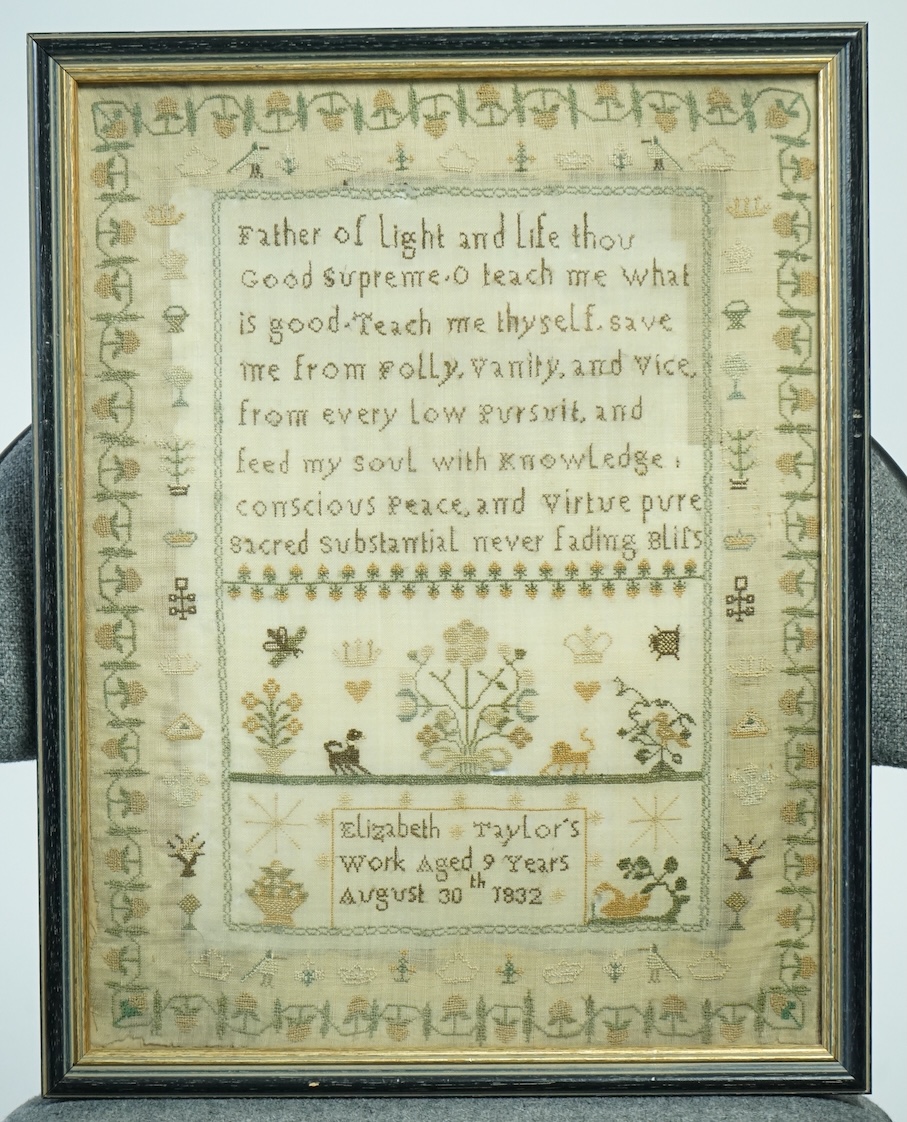 Father of light and life thou
Good Supreme. O teach me what
is good. Teach me thyself. save
me from Folly, Vanity, and Vice,
from every low Pursuit, and
feed my soul with Knowledge,
conscious Peace, and Virtue pure
Sacred Substantial never fading Bliſs
Elizabeth Taylor's
Work Aged 9 Years
August 30th 1832